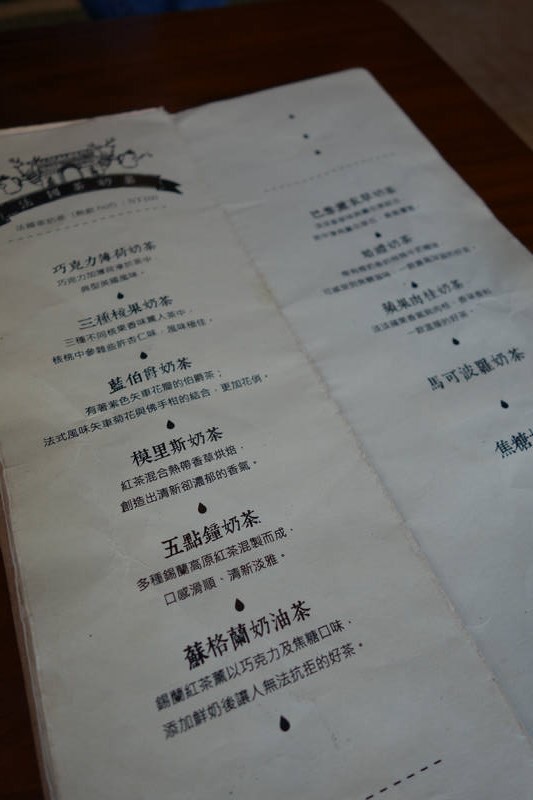 法國茶奶茶
巧克力薄荷奶茶
巧克力加薄荷葉於茶中，
典型英國風味。
三種核果奶茶
三種不同核果香味薰入茶中，
核桃中參雜些許杏仁味，風味極佳。
藍伯爵奶茶
有著紫色矢車花瓣的伯爵茶；
法式風味矢車菊花與佛手柑的結合，更加花俏。
模里斯奶茶
紅茶混合熱帶香草烘焙，
創造出清新卻濃郁的香氣。
五點鐘奶茶
多種錫蘭高原紅茶混製而成，
口感滑順、清新淡雅。
蘇格蘭奶油茶
錫蘭紅茶薰以巧克力及焦糖口味，
添加鮮奶後讓人無法抗拒的好茶。
蘋果肉桂奶茶
一款溫暖的好茶。
馬可波羅奶茶
焦糖